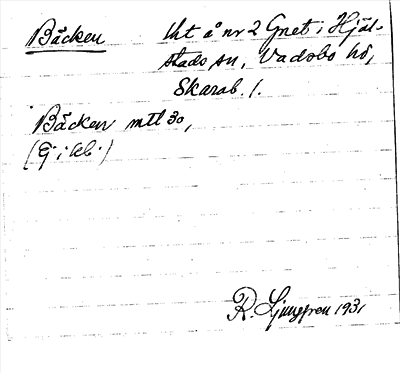 Bäcken lht å nr 2 Gnet i Hjäl-
stads sn, Vadsbo hd,
Skarab. l.
Bäcken mtl 30,
(G. i kb.)
R. Ljunggren 1931